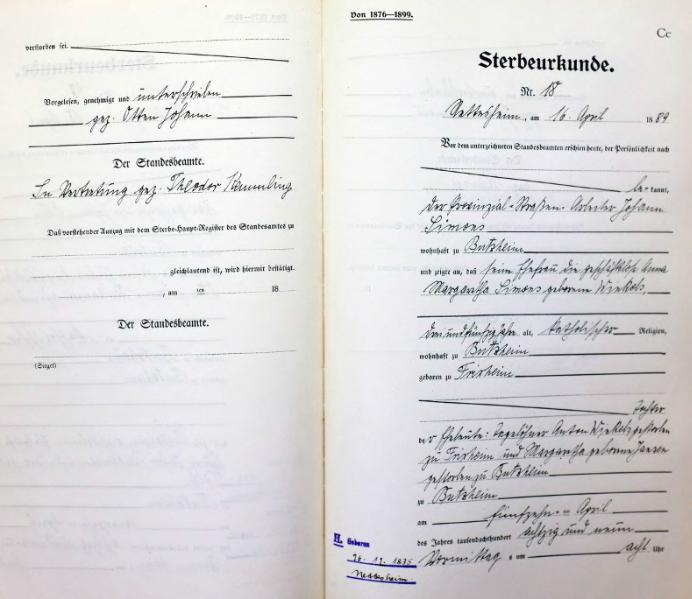 verstorben sei.
Vorgelesen, genehmigt und unterschrieben
gez. Otten Johann
Der Standesbeamte.
In Vertretung gez. Theodor
Daß vorstehender Auszug mit dem Sterbe-Haupt-Register des Standesamtes zu
gleichlautend ist, wird hiermit bestätigt.
, am ten 18
Der Standesbeamte.
(Siegel)
Von 1876—1899.
Cc
Sterbeurkunde.
Nr. 18
Nettesheim, am 16. April 1889
Vor dem unterzeichneten Standesbeamten erschien heute, der Persönlichkeit nach
be- kannt,
der Provinzial-Straßen-Arbeiter Johann
Simons
wohnhaft zu Butzheim
und zeigte an, daß seine Ehefrau die geschäftslose Anna
Margaretha Simons geborene Winkels,
dreiundfünfzig Jahre alt, katholischer Religion,
wohnhaft zu Butzheim
geboren zu Frixheim
Tochter
der Eheleute: Tagelöhner Anton Winkels gestorben
zu Frixheim und Margaretha geborene Jansen
gestorben zu Butzheim
zu Butzheim
am fünfzehn = April
des Jahres tausendachthundert achtzig und neun
Vormittags um acht Uhr
H. Geboren
26. 12. 1835
Nettesheim.